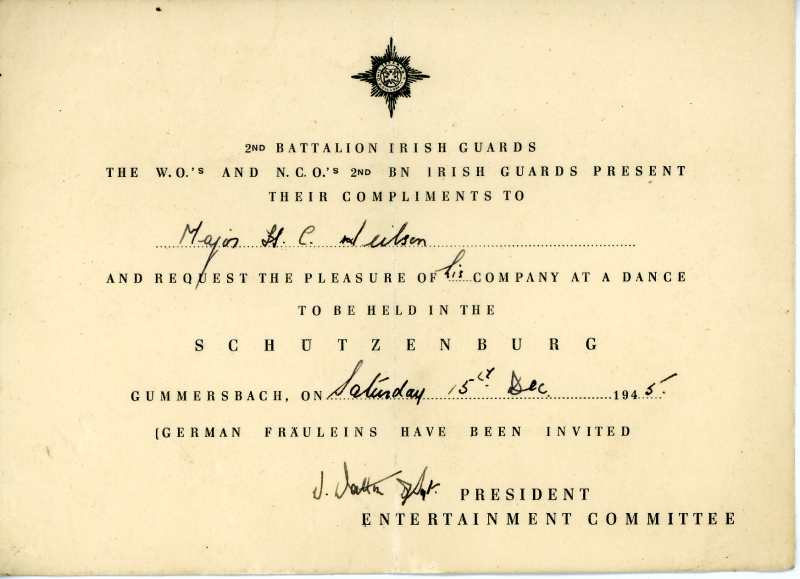 2ND BATTALION IRISH GUARDS
THE W.O.'s AND N.C.O.'s 2ND BN IRISH GUARDS PRESENT
THEIR COMPLIMENTS TO
Major H. C. Neilson
AND REQUEST THE PLEASURE OF his COMPANY AT A DANCE
TO BE HELD IN THE
SCHÜTZENBURG
GUMMERSBACH, ON Saturday 15th Dec. 1945.
(GERMAN FRÄULEINS HAVE BEEN INVITED
PRESIDENT
ENTERTAINMENT COMMITTEE